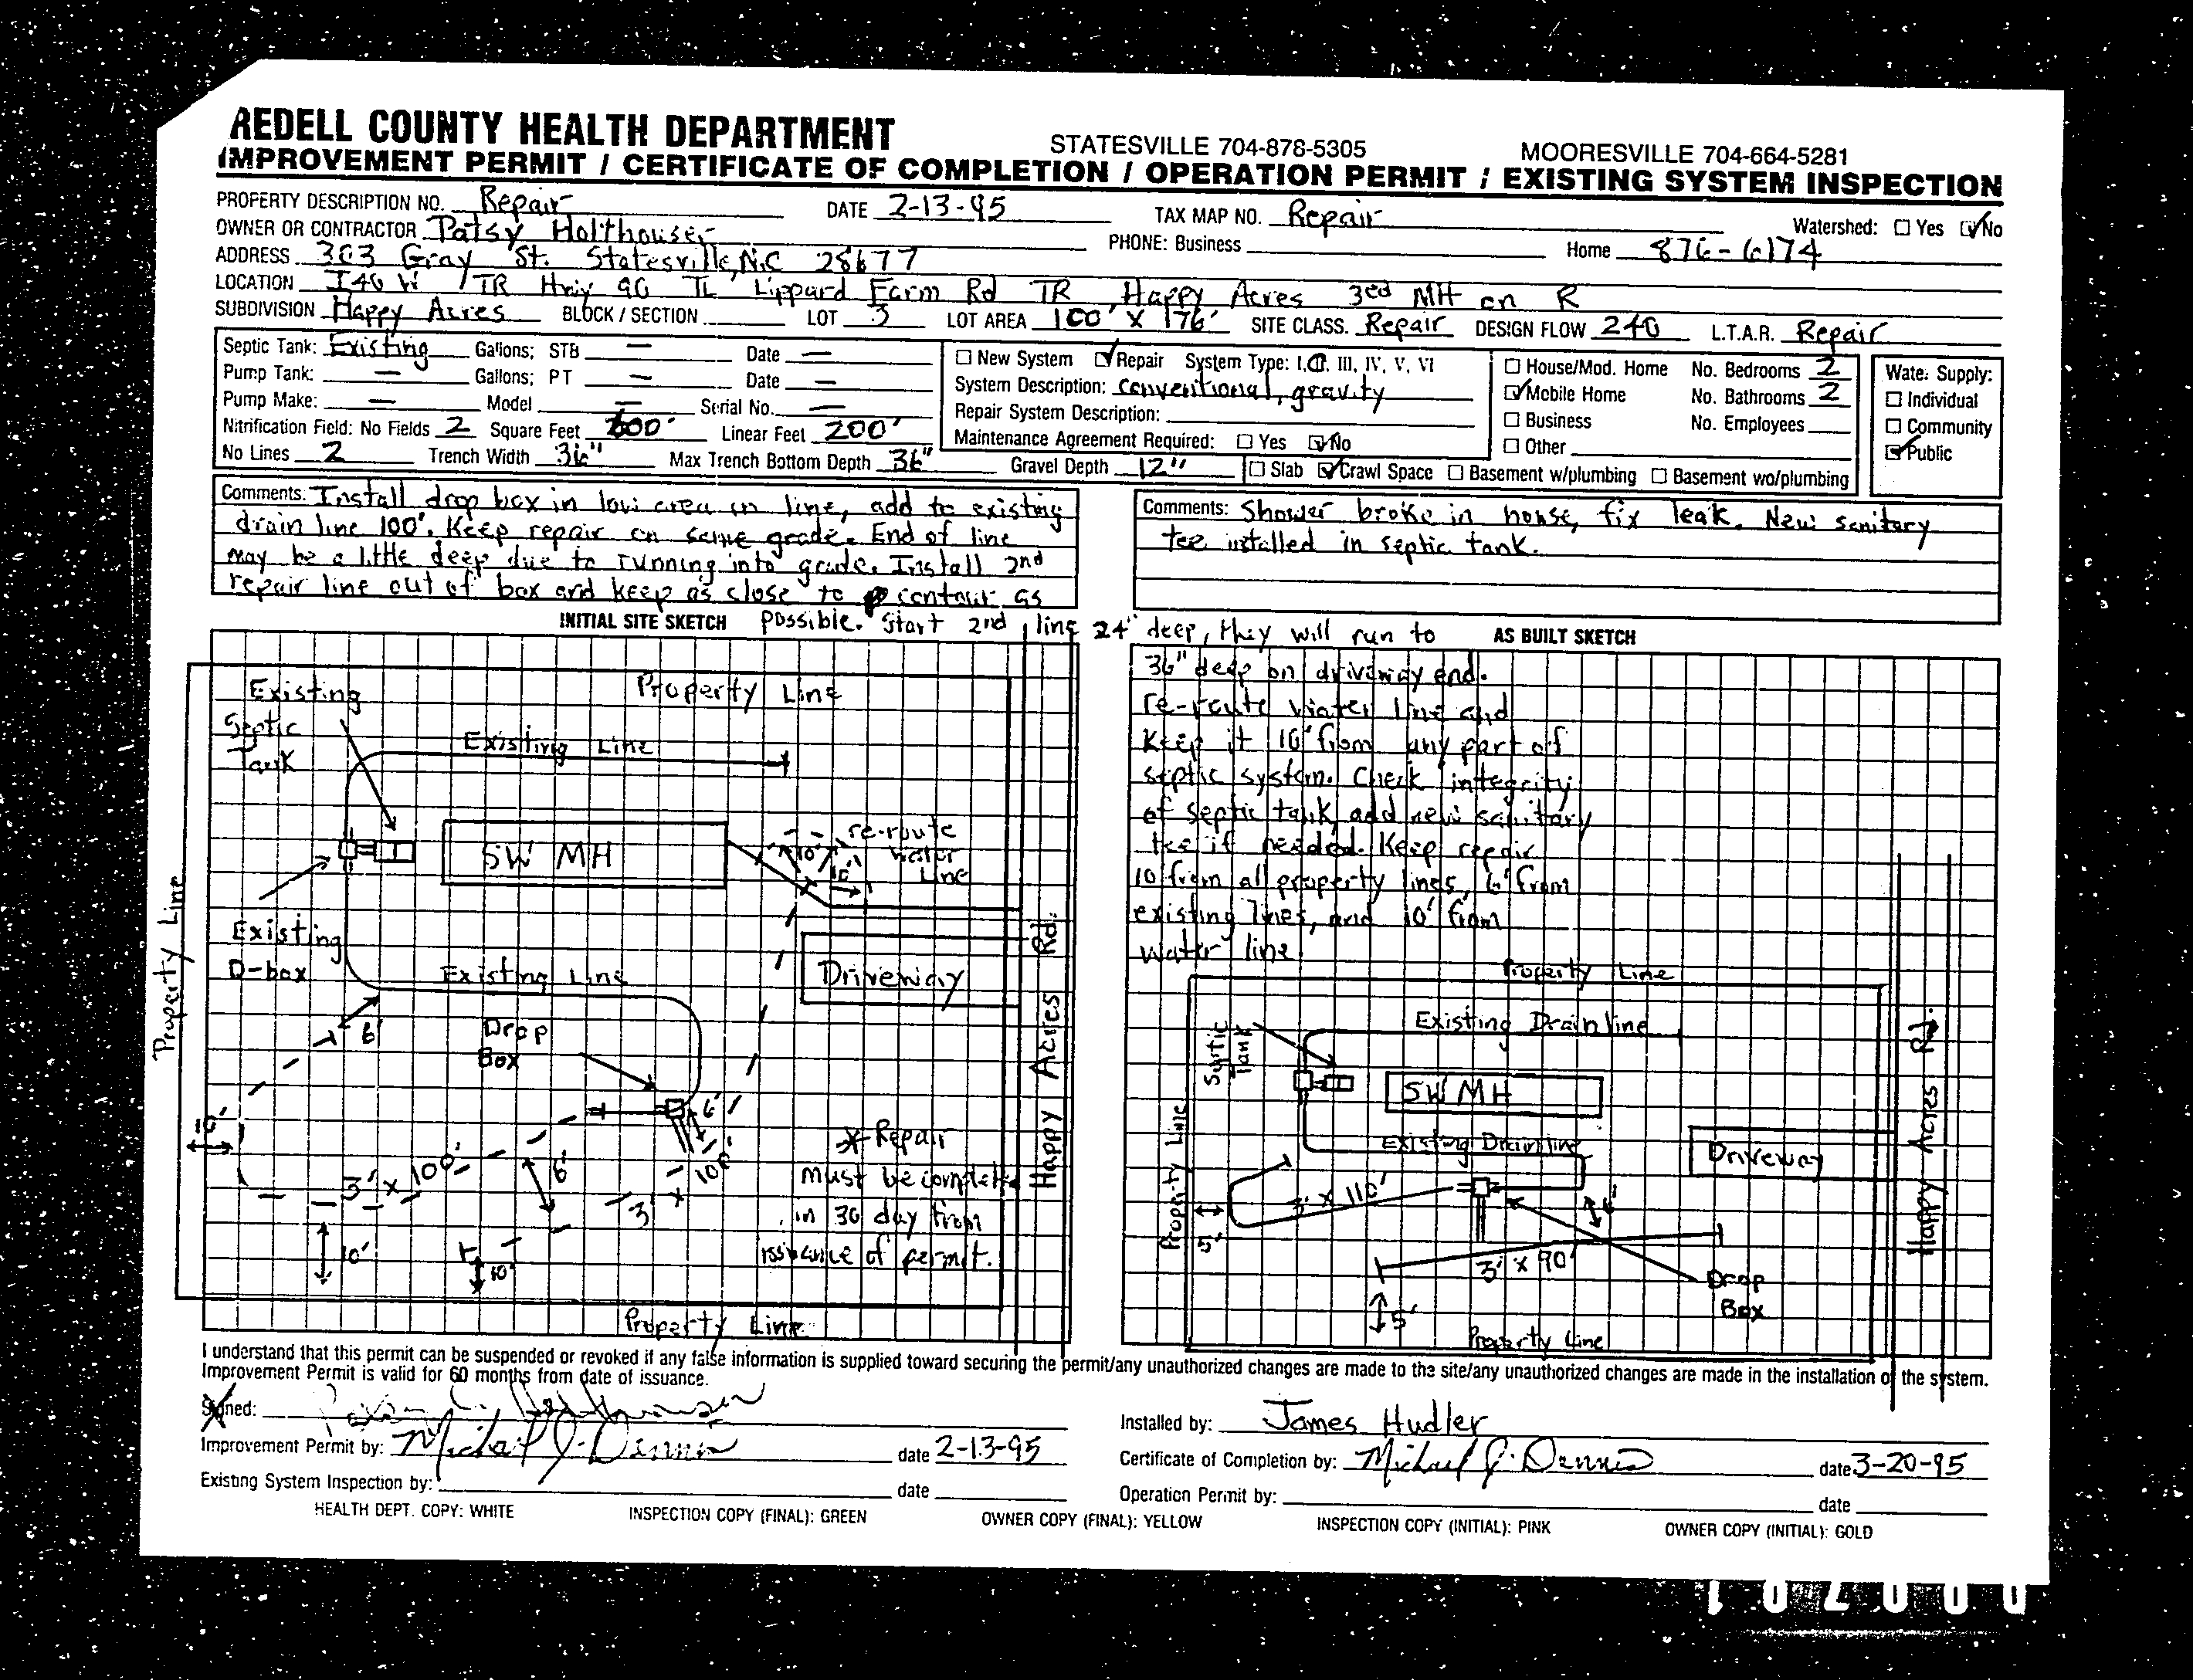 REDELL COUNTY HEALTH DEPARTMENT STATESVILLE 704-878-5305 MOORESVILLE 704-664-5281
IMPROVEMENT PERMIT / CERTIFICATE OF COMPLETION / OPERATION PERMIT / EXISTING SYSTEM INSPECTION
PROPERTY DESCRIPTION NO. Repair DATE 2-13-95 TAX MAP NO. Repair Watershed: ☐ Yes ☑ No
OWNER OR CONTRACTOR Patsy Holthouser PHONE: Business Home 876-6174
ADDRESS 303 Gray St. Statesville, N.C 28677
LOCATION I40 W / TR Hwy 90 TL Lippard Farm Rd TR, Happy Acres 3ed MH on R
SUBDIVISION Happy Acres BLOCK / SECTION LOT 3 LOT AREA 100' X 176' SITE CLASS. Repair DESIGN FLOW 240 L.T.A.R. Repair
Septic Tank: Existing Gallons; STB — Date —
Pump Tank: — Gallons; PT — Date —
Pump Make: — Model — Serial No. —
Nitrification Field: No Fields 2 Square Feet 600' Linear Feet 200'
No Lines 2 Trench Width 36" Max Trench Bottom Depth 36" Gravel Depth 12"
☐ New System ☑ Repair System Type: I, II, III, IV, V, VI
System Description: conventional, gravity
Repair System Description:
Maintenance Agreement Required: ☐ Yes ☑ No
☐ House/Mod. Home No. Bedrooms 2
☑ Mobile Home No. Bathrooms 2
☐ Business No. Employees
☐ Other
☐ Slab ☑ Crawl Space ☐ Basement w/plumbing ☐ Basement wo/plumbing
Water Supply:
☐ Individual
☐ Community
☑ Public
Comments: Install drop box in low area in line, add to existing
drain line 100'. Keep repair on same grade. End of line
may be a little deep due to running into grade. Install 2nd
repair line out of box and keep as close to contour as
INITIAL SITE SKETCH possible. Start 2nd line 24" deep, they will run to
Comments: Shower broke in house, fix leak. New sanitary
tee installed in septic tank.
AS BUILT SKETCH
36" deep on driveway end.
re-route water line and
Keep it 10' from any part of
septic system. Check integrity
of septic tank, add new sanitary
tee if needed. Keep repair
10 from all property lines, 6' from
existing lines, and 10' from
water line.
Existing
Septic
Tank
Property Line
Existing Line
SW MH
re-route
water
Line
10'
10'
Property Line
Existing
D-box
Existing Line
Driveway
Happy Acres Rd.
6'
Drop
Box
6'
10'
3' x 100'
6'
3' x 100'
10'
10'
* Repair
must be complete
in 30 day from
issuance of permit.
Property Line
Property Line
Septic
Tank
Existing Drainline
SW MH
Existing Drainline
Driveway
Happy Acres Rd.
Property Line
5'
3' x 110'
6'
3' x 90'
Drop
Box
5'
Property Line
I understand that this permit can be suspended or revoked if any false information is supplied toward securing the permit/any unauthorized changes are made to the site/any unauthorized changes are made in the installation of the system.
Improvement Permit is valid for 60 months from date of issuance.
Signed:
Improvement Permit by: Michael J. Dennis date 2-13-95
Existing System Inspection by: date
Installed by: James Hudler
Certificate of Completion by: Michael J. Dennis date 3-20-95
Operation Permit by: date
HEALTH DEPT. COPY: WHITE INSPECTION COPY (FINAL): GREEN OWNER COPY (FINAL): YELLOW INSPECTION COPY (INITIAL): PINK OWNER COPY (INITIAL): GOLD